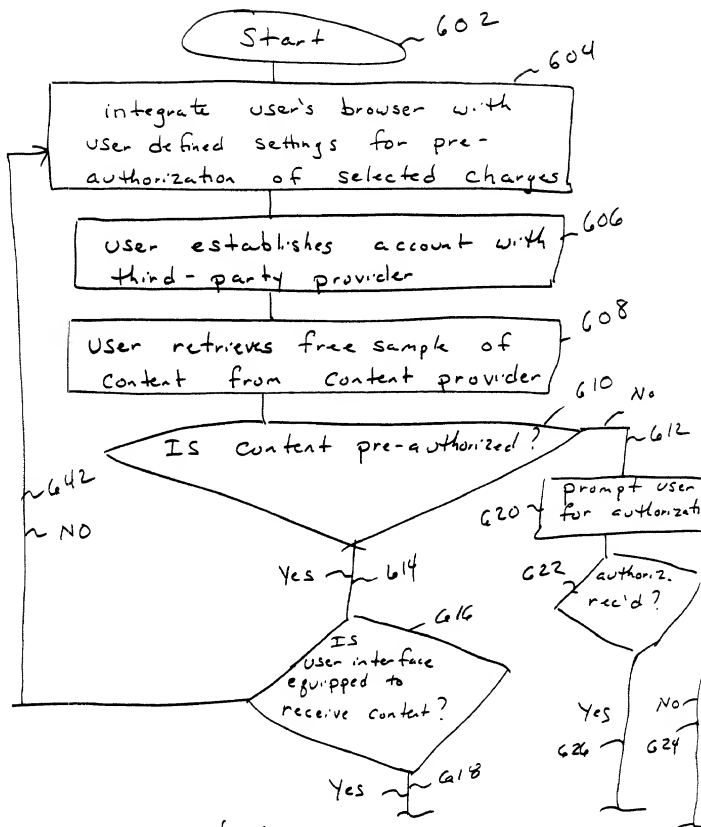 Start
602
604
integrate user's browser with
user defined settings for pre-
authorization of selected charges
606
user establishes account with
third-party provider
608
user retrieves free sample of
content from content provider
610
No
Is content pre-authorized?
612
642
NO
620
prompt user
for authorizati
Yes
614
622
authoriz.
rec'd?
616
Is
user interface
equipped to
receive content?
Yes
626
No
624
Yes
618